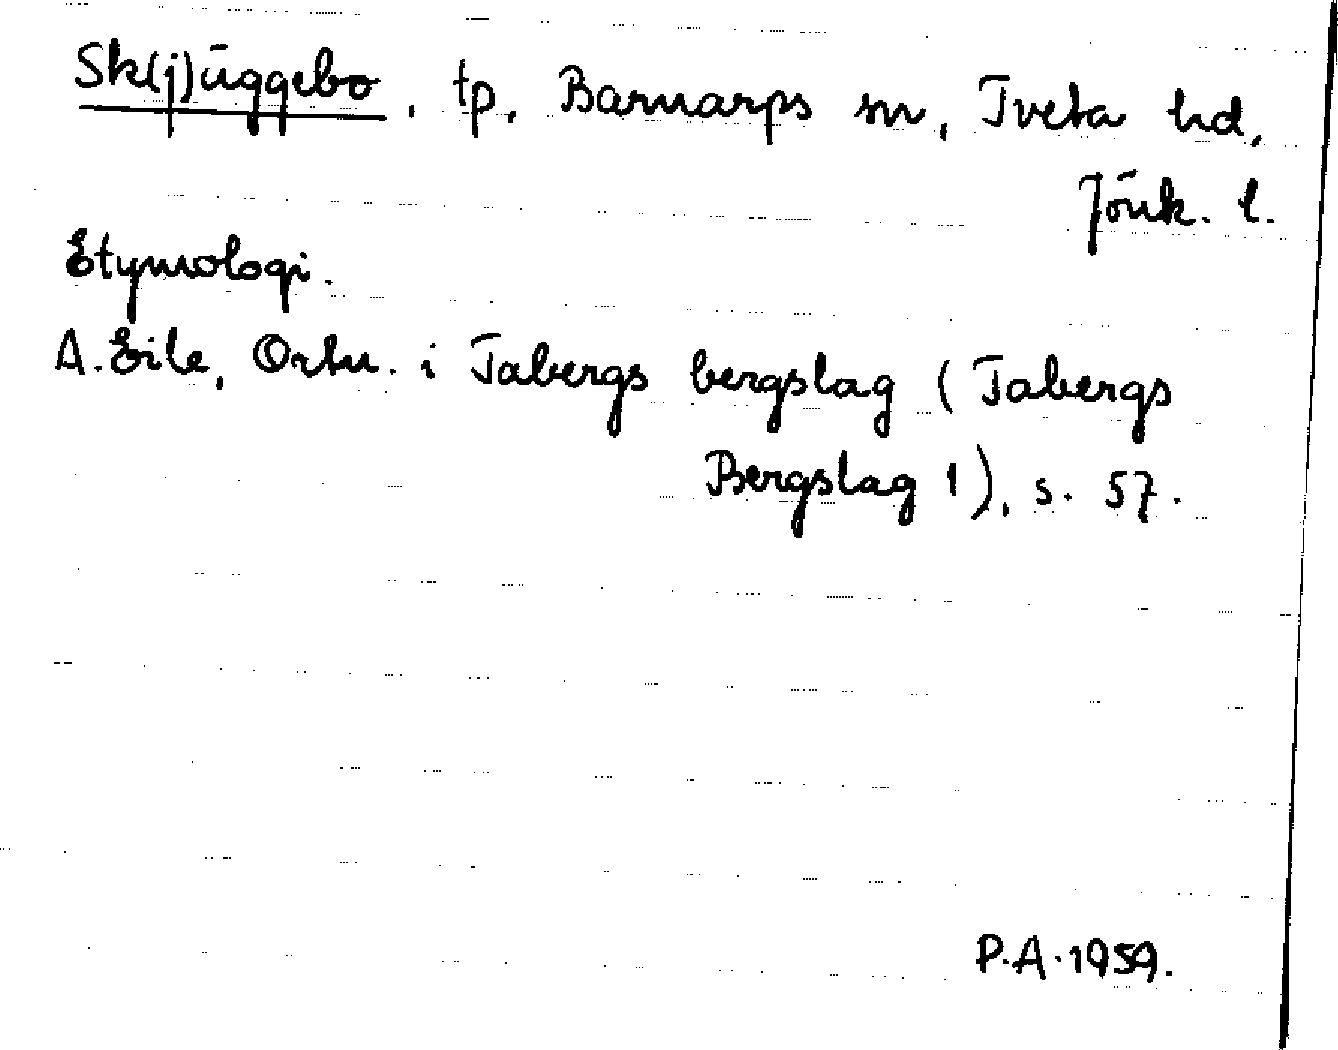 Sk(j)üggebo, tp. Barnarps sn, Tveta hd,
Jönk. l.
Etymologi.
A. Eile, Ortn. i Tabergs bergslag (Tabergs
Bergslag 1), s. 57.
P.A. 1959.